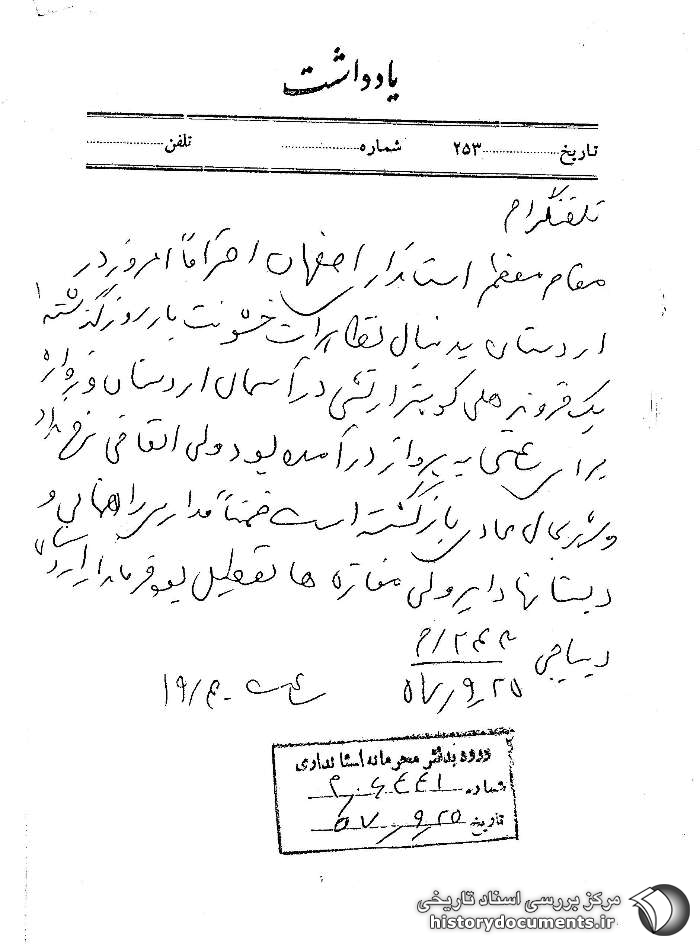 یادداشت
تاریخ................۲۵۳ شماره................ تلفن................
تلفنگرام
مقام معظم استانداری اصفهان احتراماً امروز در
اردستان بدنبال تظاهرات خشونت بار روز گذشته
یک فروند هلی کوپتر ارتشی در آسمان اردستان و زواره
برای گشتی به پرواز درآمده بود ولی اتفاقی نرخ داد
و شهر بحال عادی بازگشته است ضمناً مدارس راهنمائی و
دبستانها دایر ولی مغازه ها تعطیل بود فرماندار اردستان
دیباجی
۲۴۴/م
۵۷٫۹٫۲۵
ساعت ۱۹/۴۰
ورود بدفتر محرمانه استانداری
شماره ۲۰۶۴۴۱
تاریخ ۵۷٫۹٫۲۵
مرکز بررسی اسناد تاریخی
historydocuments.ir